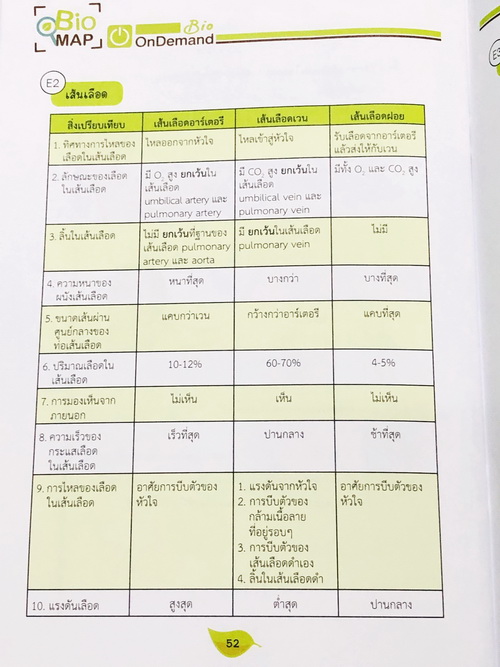 Bio
MAP
Bio
OnDemand
E2
เส้นเลือด
สิ่งเปรียบเทียบ
เส้นเลือดอาร์เตอรี
เส้นเลือดเวน
เส้นเลือดฝอย
1. ทิศทางการไหลของ
เลือดในเส้นเลือด
ไหลออกจากหัวใจ
ไหลเข้าสู่หัวใจ
รับเลือดจากอาร์เตอรี
แล้วส่งให้กับเวน
2. ลักษณะของเลือด
ในเส้นเลือด
มี O₂ สูง ยกเว้นใน
เส้นเลือด
umbilical artery และ
pulmonary artery
มี CO₂ สูง ยกเว้นใน
เส้นเลือด
umbilical vein และ
pulmonary vein
มีทั้ง O₂ และ CO₂ สูง
3. ลิ้นในเส้นเลือด
ไม่มี ยกเว้นที่ฐานของ
เส้นเลือด pulmonary
artery และ aorta
มี ยกเว้นในเส้นเลือด
pulmonary vein
ไม่มี
4. ความหนาของ
ผนังเส้นเลือด
หนาที่สุด
บางกว่า
บางที่สุด
5. ขนาดเส้นผ่าน
ศูนย์กลางของ
ท่อเส้นเลือด
แคบกว่าเวน
กว้างกว่าอาร์เตอรี
แคบที่สุด
6. ปริมาณเลือดใน
เส้นเลือด
10-12%
60-70%
4-5%
7. การมองเห็นจาก
ภายนอก
ไม่เห็น
เห็น
ไม่เห็น
8. ความเร็วของ
กระแสเลือด
ในเส้นเลือด
เร็วที่สุด
ปานกลาง
ช้าที่สุด
9. การไหลของเลือด
ในเส้นเลือด
อาศัยการบีบตัวของ
หัวใจ
1. แรงดันจากหัวใจ
2. การบีบตัวของ
กล้ามเนื้อลาย
ที่อยู่รอบๆ
3. การบีบตัวของ
เส้นเลือดดำเอง
4. ลิ้นในเส้นเลือดดำ
อาศัยการบีบตัวของ
หัวใจ
10. แรงดันเลือด
สูงสุด
ต่ำสุด
ปานกลาง
52